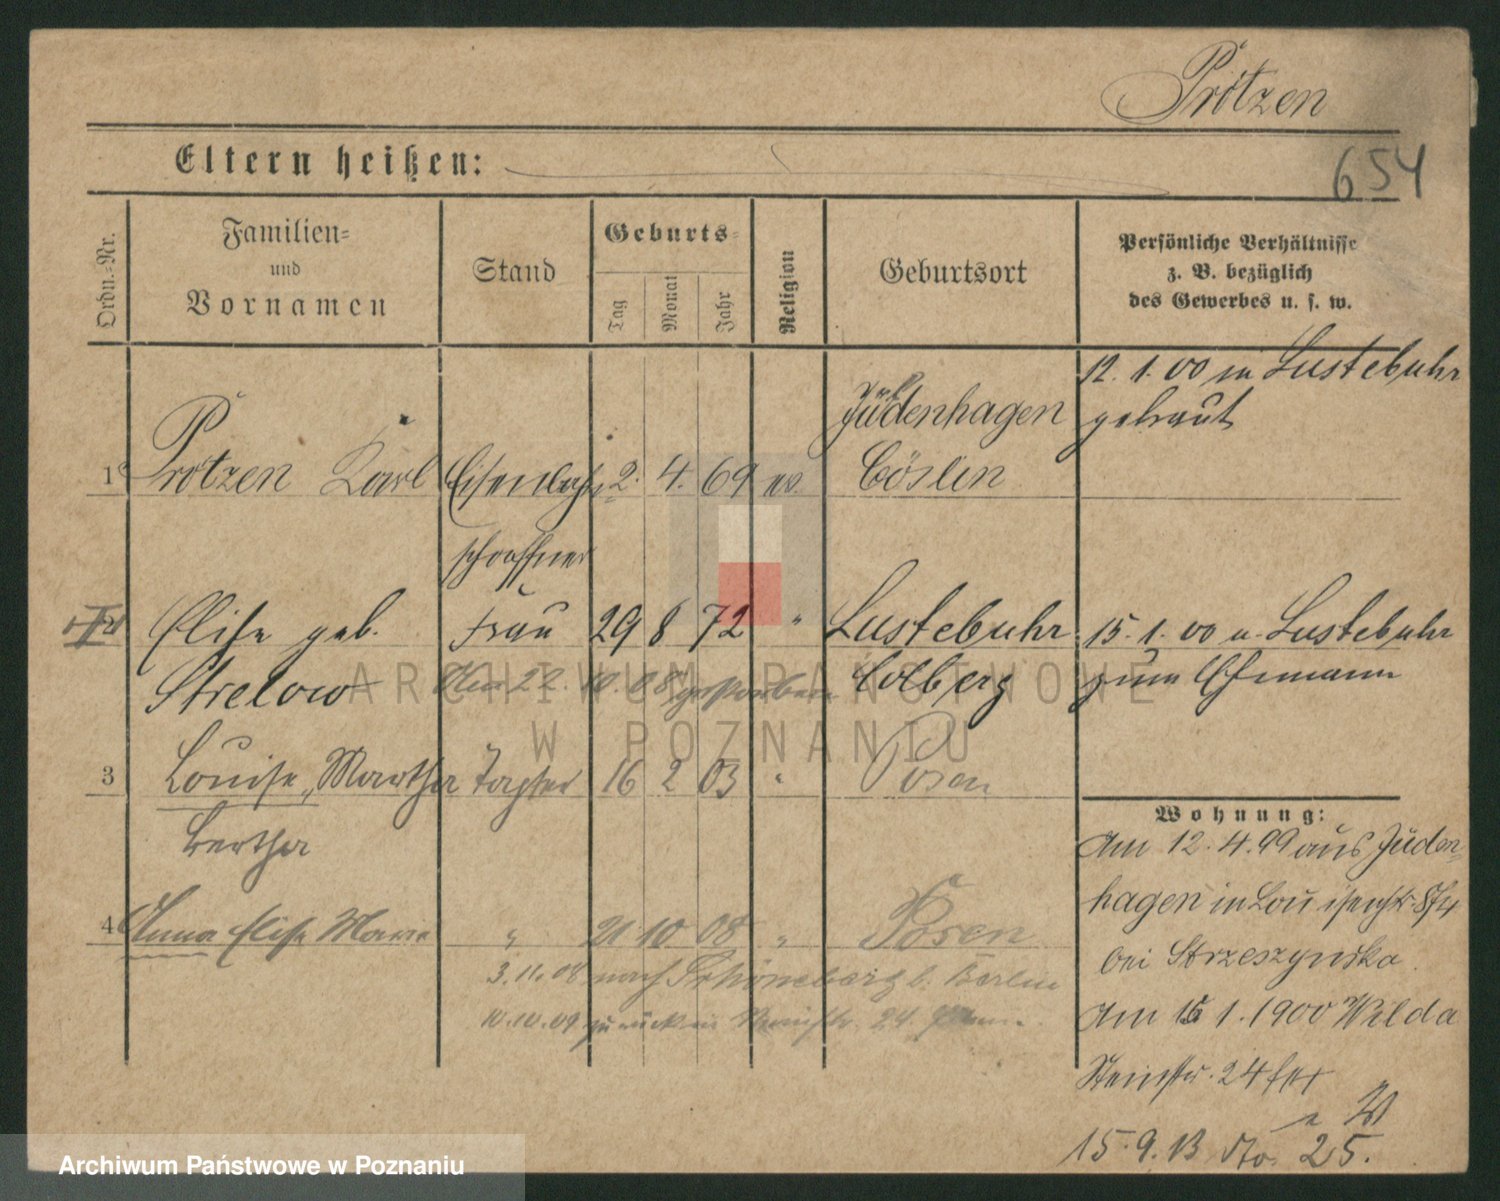 Protzen
654
Eltern heißen:
Ordn.-Nr.
Familien-
und
Vornamen
Stand
Geburts-
Tag
Monat
Jahr
Religion
Geburtsort
Persönliche Verhältnisse
z. B. bezüglich
des Gewerbes u. s. w.
12. 1. 00 in Lustebuhr
getraut
Jüdenhagen
1 Protzen Karl Eisenbahn 2. 4. 69 ev. Cöslin
schaffner
Elise geb. Frau 29 8 72 " Lustebuhr 15. 1. 00 v. Lustebuhr
Strelow 22. 10. 08 gestorben Colberg zum Ehemann
3 Louise, Martha Tochter 16 2 03 " Posen
Bertha
4 Anna Elise Marie " 21 10 08 " Posen
3. 11. 08 nach Schöneberg b. Berlin
10. 10. 09 zurück in 24
Wohnung:
Am 12. 4. 99 aus Jüden-
hagen in Louisenstr.
bei Strzeszynska
Am 15 1. 1900 Wilda
Steinstr. 24
W
15. 9. 13 dto 25.
ARCHIWUM PAŃSTWOWE
W POZNANIU
Archiwum Państwowe w Poznaniu